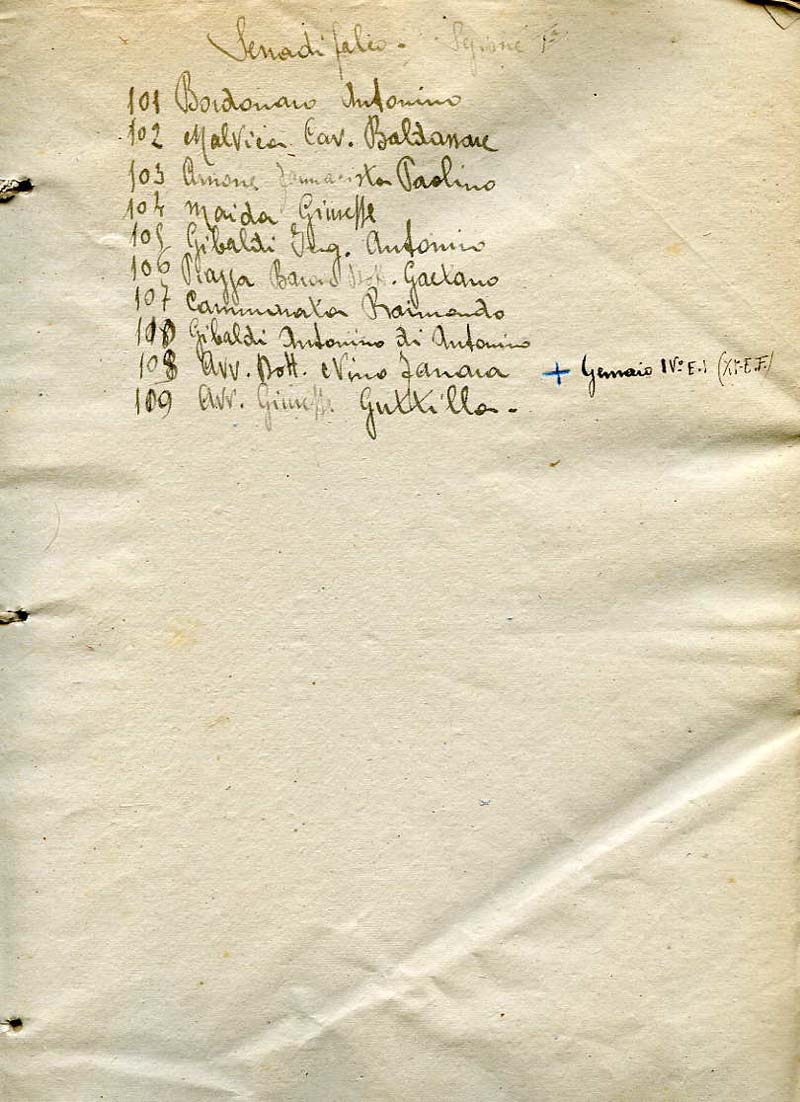 Serradifalco - Sezione 1ª
101 Bordonaro Antonino
102 Malvica Cav. Baldassare
103 Amone Farmacista Paolino
104 Maida Giuseppe
105 Gibaldi Ing. Antonino
106 Piazza Barone Dott. Gaetano
107 Camminata Raimondo
108 Gibaldi Antonino di Antonino
108 Avv. Dott. Nino Janara + Gennaio IVº E.
109 Avv. Giuseppe Guttilla -